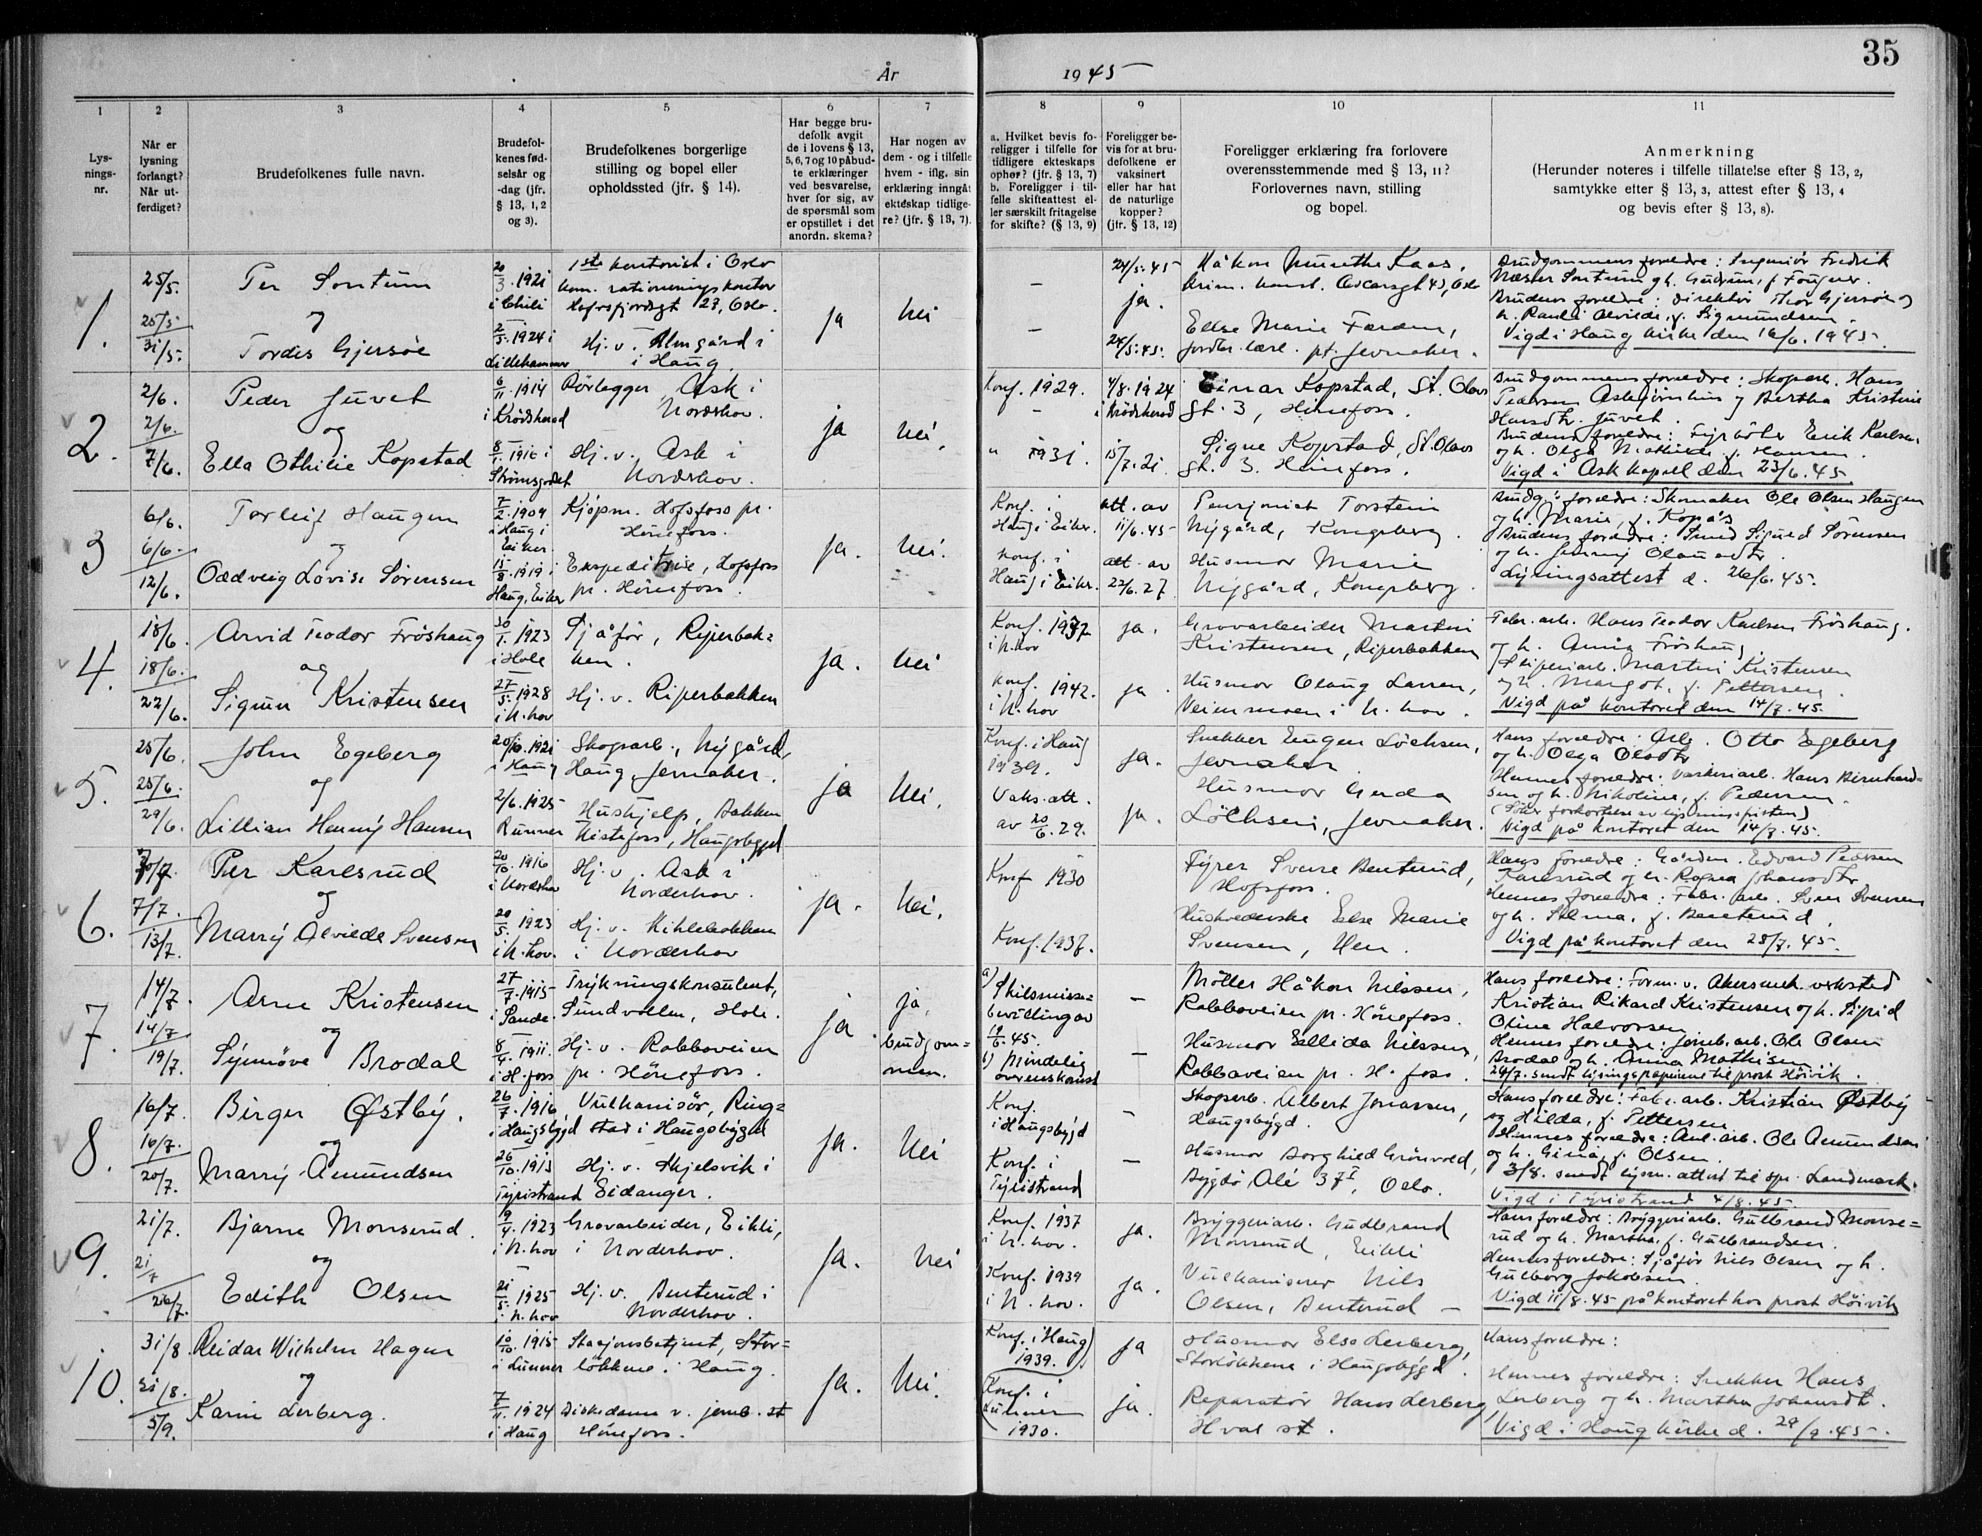 35
År 1945
1 2 3 4 5 6 7 8 9 10 11
Lys-
nings-
nr.
Når er
lysning
forlangt?
Når ut-
ferdiget?
Brudefolkenes fulle navn.
Brudefol-
kenes fød-
selsår og
-dag (jfr.
§ 13, 1, 2
og 3).
Brudefolkenes borgerlige
stilling og bopel eller
opholdssted (jfr. § 14).
Har begge bru-
defolk avgit
de i lovens § 13,
5, 6, 7 og 10 påbud-
te erklæringer
ved besvarelse,
hver for sig, av
de spørsmål som
er opstillet i det
anordn. skema?
Har nogen av
dem - og i tilfelle
hvem - iflg. sin
erklæring inngått
ekteskap tidlige-
re? (jfr. § 13, 7).
a. Hvilket bevis fo-
religger i tilfelle for
tidligere ekteskaps
ophør? (jfr. § 13, 7)
b. Foreligger i til-
felle skifteattest el-
ler særskilt fritagelse
for skifte? (§ 13, 9)
Foreligger be-
vis for at bru-
defolkene er
vaksinert
eller har hat
de naturlige
kopper?
(jfr. § 13, 12)
Foreligger erklæring fra forlovere
overensstemmende med § 13, 11?
Forlovernes navn, stilling
og bopel.
Anmerkning
(Herunder noteres i tilfelle tillatelse efter § 13, 2,
samtykke efter § 13, 3, attest efter § 13, 4
og bevis efter § 13, 8).
1.
25/5.
25/5
31/5
Per Sontum
og
Tordis Gjersøe
20/3 1921
i Chili
2/5 1924 i
Lillehammer
1ste kontorist i Oslo
kom. rationeringskontor
27, Oslo.
Hj. v. Almgård i
i Haug
ja
nei
—
—
24/5-45
ja.
24/5-45.
Håkon Munthe Kaas,
Oscarsgt 43, Oslo
Else Marie
pt. Jevnaker.
Brudgommens foreldre: Ingeniør Fredrik
Næster Sontum og h. Gudrun, f. Fougner.
Brudens foreldre: direktør Thor Gjersøe og
h. Randi Alvilde, f. Sigmundsen
Vigd i Haug kirke den 16/6. 1945.
2.
2/6.
2/6.
7/6.
Peder Juvet
og
Ella Othilie Kopstad
6/11. 1914
i Krødsherad
8/1. 1916 i
Strømsgodset
Rørlegger Ask i
Norderhov.
Hj. v. Ask i
Norderhov.
ja
nei.
Konf. 1929.
—
" 1931.
4/8. 1924
i Krødsherad
15/7. 21.
Einar Kopstad, St. Olavs
gt. 3, Hønefoss.
Signe Kopstad, St. Olavs
gt. 3. Hønefoss.
Brudgommens foreldre: Skogarb. Hans
Pedersen Askjernhus og Bertha Kristine
Hansdtr. Juvet.
Brudens foreldre: Fyrbøter Erik Karlsen
og h. Olga Mathilde f. Hansen.
Vigd i Ask kapell den 23/6. 45.
3
6/6.
6/6.
12/6.
Torleif Haugen
og
Oddveig Lovise Sørensen
7/2. 1904
i Haug i
Eiker
15/8. 1919 i
Haug, Eiker
Kjøpm. Hofsfoss pr.
Hønefoss.
Ekspeditrise, Hofsfoss
pr. Hønefoss.
ja.
nei.
Konf. i
Haug i Eiker.
Konf. i
Haug i Eiker.
att. av
11/6. 45
att. av
22/6. 27
Pensjonist Torstein
Nygård, Kongsberg.
Husmor Marie
Nygård, Kongsberg.
Brudg. foreldre: Skomaker Ole Olsen Haugen
og h. Marie, f. Kopås
Brudens foreldre: Smed Sigurd Sørensen
og h. Jenny Olausdtr.
Lysningsattest d. 26/6. 45.
4.
18/6.
18/6.
22/6.
Arvid Teodor Frøshaug
og
Sigrun Kristensen
30/1. 1923
i Hole
27/5. 1928
i N.hov
Sjåfør, Riperbak-
ken.
Hj. v. Riperbakken
ja.
nei
Konf. 1937
i N.hov
Konf. 1942.
i N.hov
ja.
ja.
Grovarbeider Martin
Kristensen, Riperbakken
Husmor Olaug Larsen,
Veienmoen i N.hov.
Fabr. arb. Hans Teodor Karlsen Frøshaug.
og h. Anna Frøshaug
Sliperiarb. Martin Kristensen
og h. Margot, f. Pettersen.
Vigd på kontoret den 14/7. 45.
5.
25/6.
25/6.
29/6.
John Egeberg
og
Lillian Henny Hansen
20/10. 1921
i Haug
2/6. 1925
Runner
Skogsarb., Nygård,
Haug, Jevnaker.
Hushjelp, Bakken
Kistefoss, Haugsbygd
ja
nei.
Konf. i Haug
1939.
Vaks. att.
av 20/6. 29.
ja.
ja.
Snekker Eugen Lochsen,
Jevnaker.
Husmor Gerda
Lochsen, Jevnaker.
Hans foreldre: Arb. Otto Egeberg
og h. Olga Olsdtr
Hennes foreldre: Vaskeriarb. Hans Bernhard-
sen og h. Nikoline, f. Pedersen.
(Søker forkortelse av lysningsfristen)
Vigd på kontoret den 14/7. 45.
6.
7/7
7/7.
13/7.
Per Karlsrud
og
Marry Alvilde Svensen
20/10. 1916
i Nordrhov
20/5. 1923
i N.hov.
Hj. v. Ask i
Norderhov.
Hj. v. Kihlebakken
i Norderhov
ja.
nei.
Konf 1930
Konf. 1937.
Fyrer Sverre Bentrud,
Hofsfoss.
Else Marie
Svensen, Hen.
Hans foreldre: Gårdbr. Edvard Pedersen
Karlsrud og h. Ragna Johansdtr
Hennes foreldre: Fabr. arb. Sven Svensen
og h. Selma, f. Bentrud
Vigd på kontoret den 28/7. 45.
7.
14/7.
14/7
19/7.
Arne Kristensen
og
Synnøve Brodal
27/7. 1915
i Sande.
8/4. 1911.
i H.foss
Trykningskonsulent,
Sundvolden, Hole.
Hj. v. Rabbaveien
pr. Hønefoss.
ja.
ja,
brudgom-
men.
a) Skilsmisse-
bevilling av
19/6. 45.
b) Mindelig
overenskomst
—
—
Møller Håkon Nilssen,
Rabbaveien pr. Hønefoss.
Husmor Ellida Nilssen,
Rabbaveien pr. H.foss.
Hans foreldre: Form. v. Akers mek. verksted
Kristian Rikard Kristensen og h. Sigrid
Oline Halvorsen
Hennes foreldre: Jernb. arb. Ole Olsen
Brodal og h. Anna Mathisen
24/7. sendt lysningspapirene til prost Høivik.
8.
16/7.
16/7.
20/7.
Birger Østby.
og
Marry Amundsen
26/7. 1916
i Haugsbygd
26/10. 1915
Tyristrand
Vulkanisør, Ring-
stad i Haugsbygd
Hj. v. Skjelsvik i
Eidanger.
ja.
nei
Konf.
i Haugsbygd
Konf. i
Tyristrand
—
—
Skogarb. Albert Jonassen,
Haugsbygd.
Husmor Borghild Grønvold,
Bygdø Alé 37 I, Oslo.
Hans foreldre: Fabr. arb. Kristian Østby
og Hilda, f. Pettersen
Hennes foreldre: Anl. arb. Ole Amundsen
og h. Gina, f. Olsen.
3/8. sendt lysn. attest til spr. Landmark.
Vigd i Tyristrand 4/8. 45.
9.
21/7.
21/7
26/7.
Bjarne Monserud.
og
Edith Olsen
19/4. 1923
i N.hov
21/5. 1925
i N.hov
Grovarbeider, Eikli,
i Norderhov.
Hj. v. Benterud i
Norderhov.
ja.
nei
Konf. 1937
i N.hov.
Konf. 1939
i N.hov.
ja.
ja.
Bryggeriarb. Gudbrand
Monserud, Eikli
Vulkaniserer Nils
Olsen, Benterud —
Hans foreldre: Bryggeriarb. Gulbrand Monse-
rud og h. Martha, f. Gulbrandsen.
Hennes foreldre: Sjåfør Nils Olsen og h.
Gulborg Jakobsen.
Vigd 11/8. 45 på kontoret hos prost Høivik
10.
31/8.
31/8.
5/9.
Reidar Wilhelm Hagen
og
Karin Lerberg.
10/10. 1915
i Lunner
7/11. 1924
i Haug
Stasjonsbetjent, Stor-
løkkene i Haug.
Diskedame v. jernb. st
Hønefoss.
ja.
nei.
Konf. i Haug
1939.
Konf. i
Lunner
1930.
ja
ja.
Husmor Else Lerberg,
Storløkkene i Haugsbygd.
Reparatør Hans Lerberg
Hval st.
Hans foreldre:
Hennes foreldre: Snekker Hans
Lerberg og h. Martha Johansdt.
Vigd i Haug kirke d. 29/9. 45.